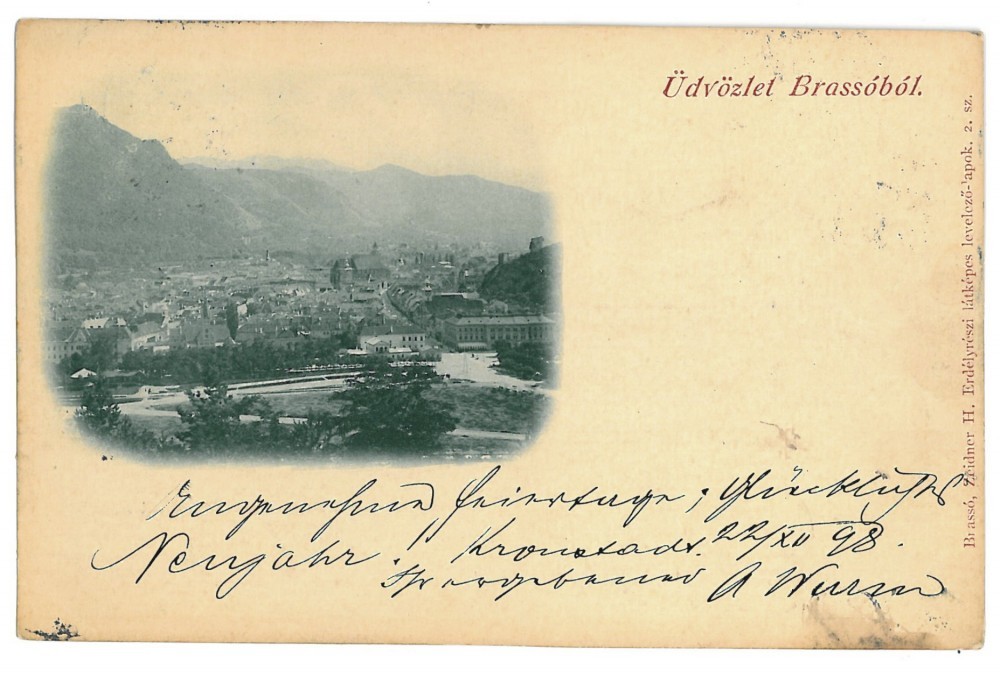 Üdvözlet Brassóból.
Brassó, Zeidner H. Erdélyrészi látképes levelező-lapok. 2. sz.
Angenehme Feiertage, Glückliches
Neujahr. Kronstadt. 22/XII 98.
Ihr ergebener A